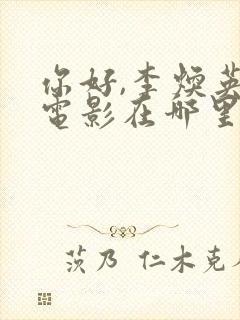 你好,李焕英
電影在哪里
茨乃 仁木克